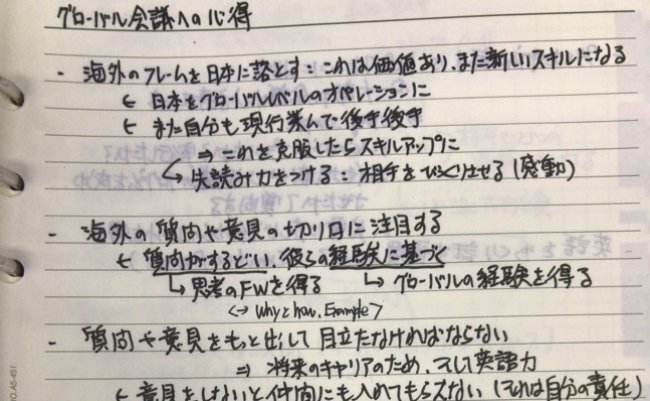 グローバル会議への心得
- 海外のフレームを日本に落とす：これは価値あり、また新しいスキルになる
← 日本をグローバルレベルのオペレーションに
← また自分も現行業んで後手後手
⇒ これを克服したらスキルアップに
↳ 先読み力をつける：相手をびっくりさせる（感動）
- 海外の質問や意見の切り口に注目する
← 質問がするどい、彼らの経験に基づく
↳ 思考のFWを得る ↳ グローバルの経験を得る
<-> Why と how, Example>
- 質問や意見をもっと出して目立たなければならない
⇒ 将来のキャリアのため、そして英語力
← 意見をしないと仲間にも入れてもらえない（それは自分の責任）
NO. A5-451